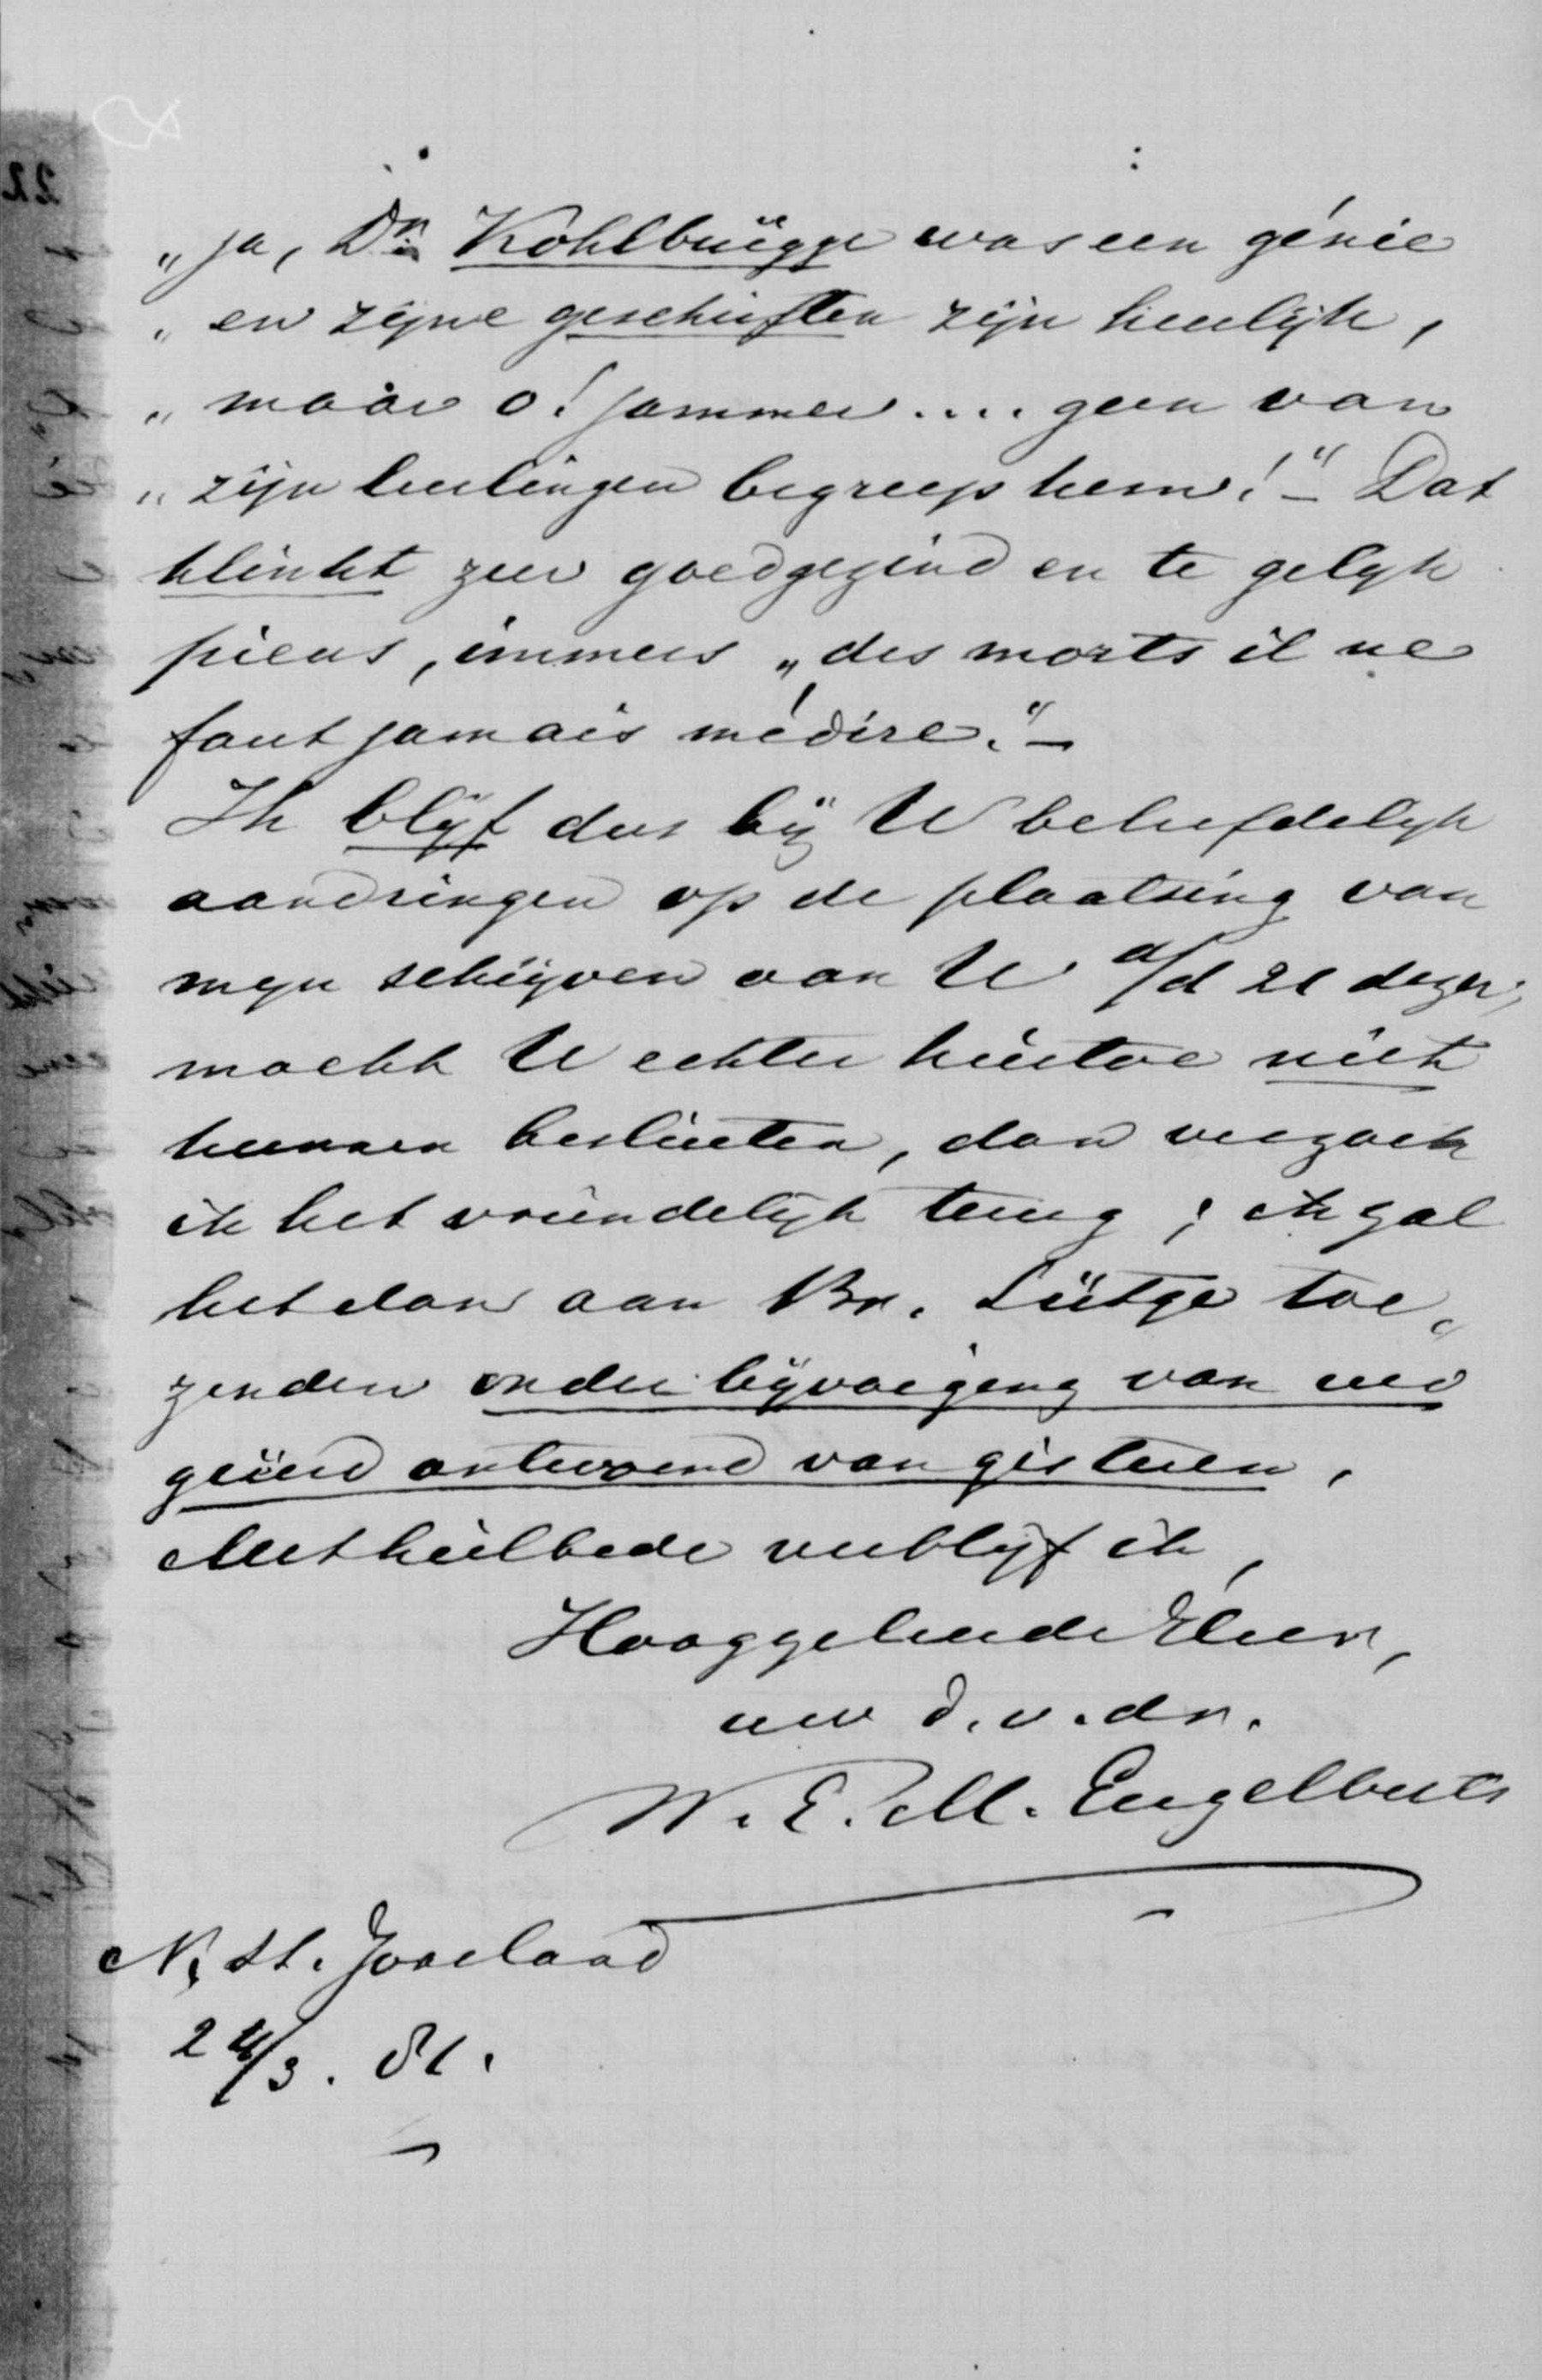 „ja, Dr. Kohlbrügge was een génie
„en zijne geschriften zijn heerlijk,
„maar o! jammer.... geen van
„zijn leerlingen begreep hem!“ – Dat
klinkt zeer goedgezind en te gelijk
pieus, immers „des morts il ne
faut jamais médire.“ –
Ik blijf dus bij U beleefdelijk
aandringen op de plaatsing van
mijn schrijven aan U d/d 21 dezer;
mocht U echter hiertoe niet
kunnen besluiten, dan verzoek
ik het vriendelijk terug; ik zal
het dan aan Br. Lütge toe„
zenden onder bijvoeging van uw
geëerd antwoord van gisteren,
Met heilbede verblijf ik,
Hooggeleerde Heer,
uw d.v.dr.
W. E. M. Engelberts
N. St. Joosland
24/3. 81.
22